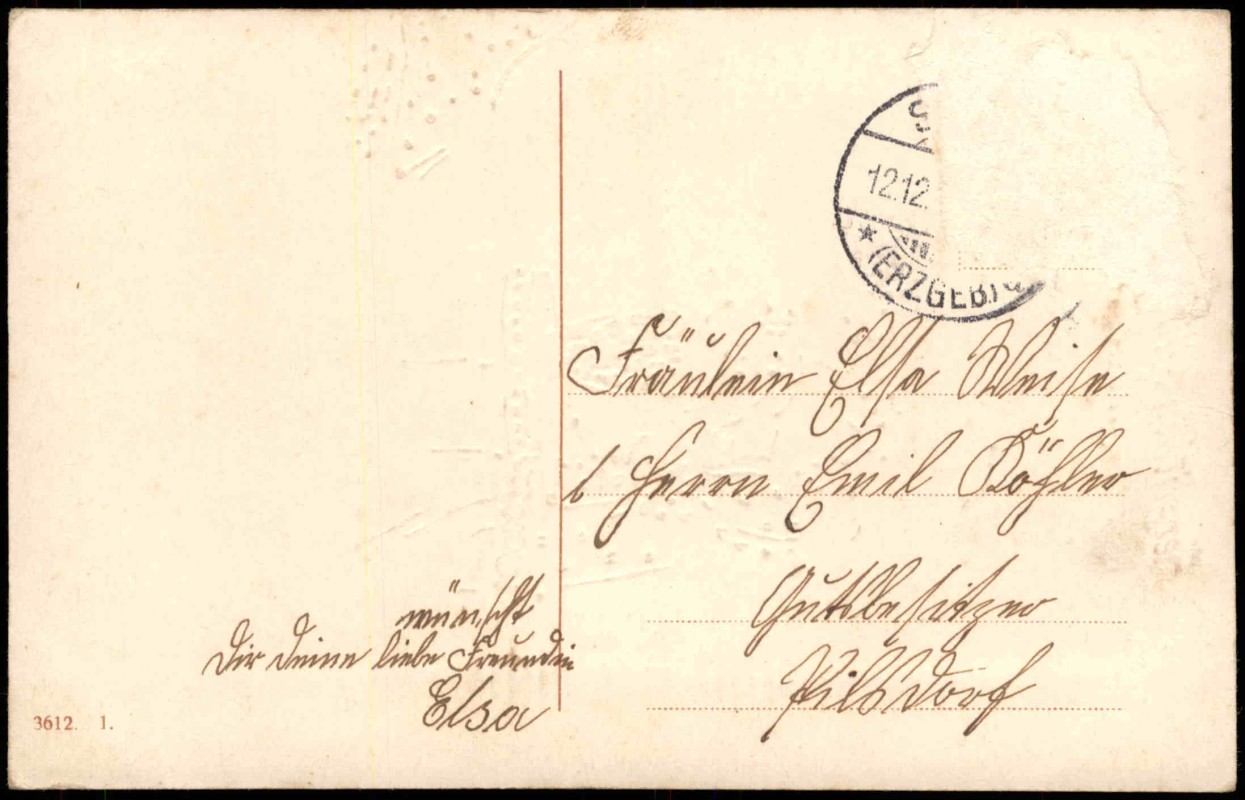 12.12.
(ERZGEB.)
Fräulein Elsa Weise
b Herrn Emil Köhler
Gutsbesitzer
Pilsdorf
wünscht
Dir deine liebe Freundin
Elsa
3612. 1.